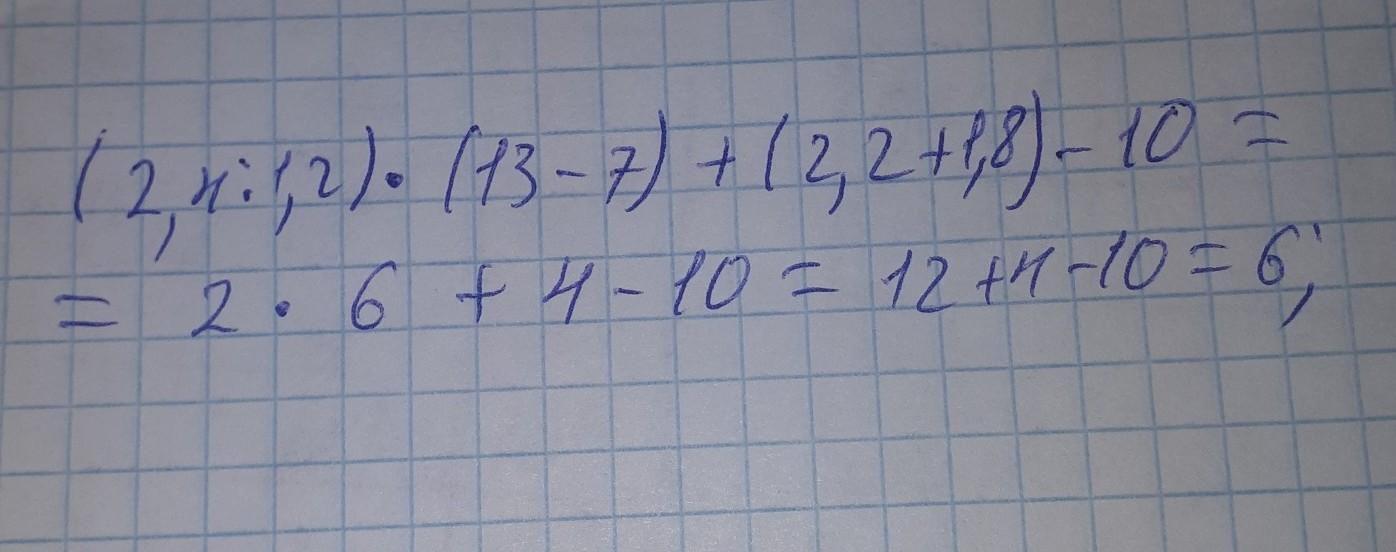 (2,4:1,2)·(13-7)+(2,2+1,8)-10=
=2·6+4-10=12+4-10=6;